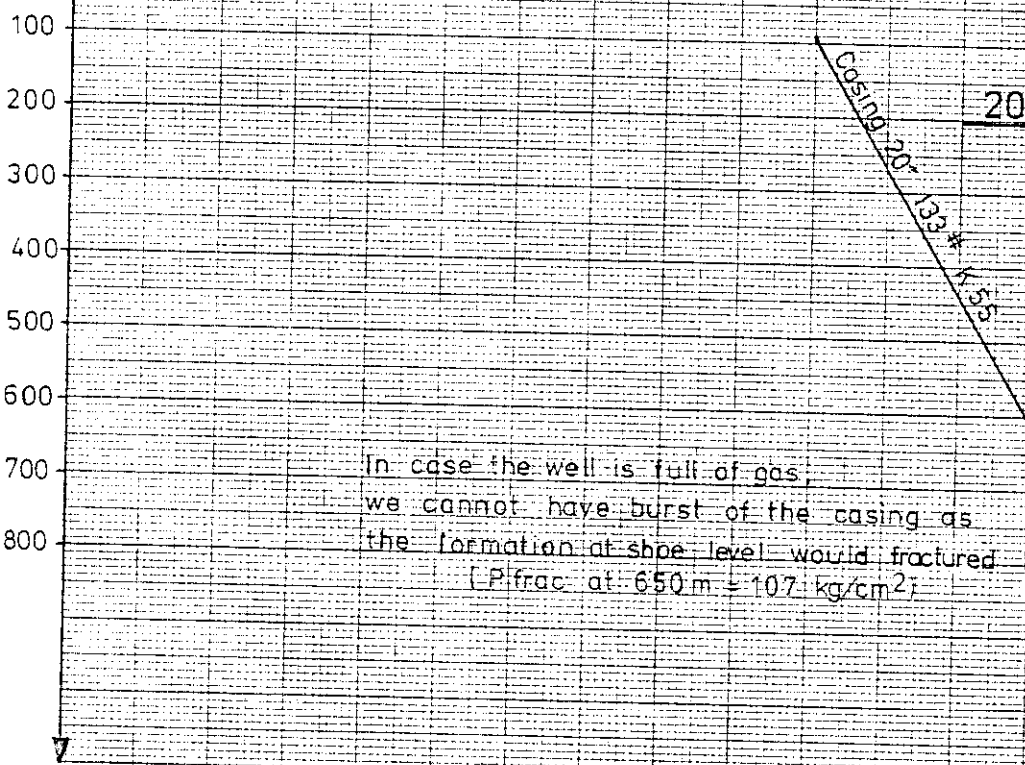 100
200
300
400
500
600
700
800
Casing 20" 133 # K 55
20
In case the well is full of gas,
we cannot have burst of the casing as
the formation at shoe level would fractured
(P frac at 650 m = 107 kg/cm²)